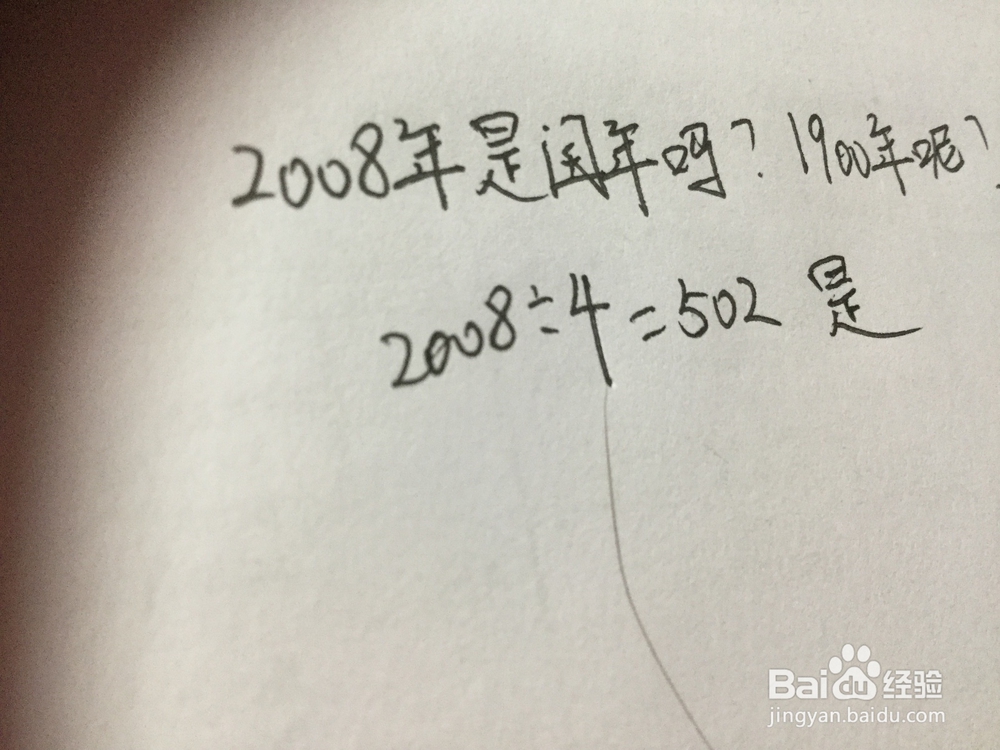 2008年是闰年吗?1900年呢?
2008÷4=502 是
Baidu经验
jingyan.baidu.com